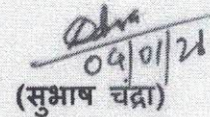 09/01/26
(सुभाष चंद्रा)